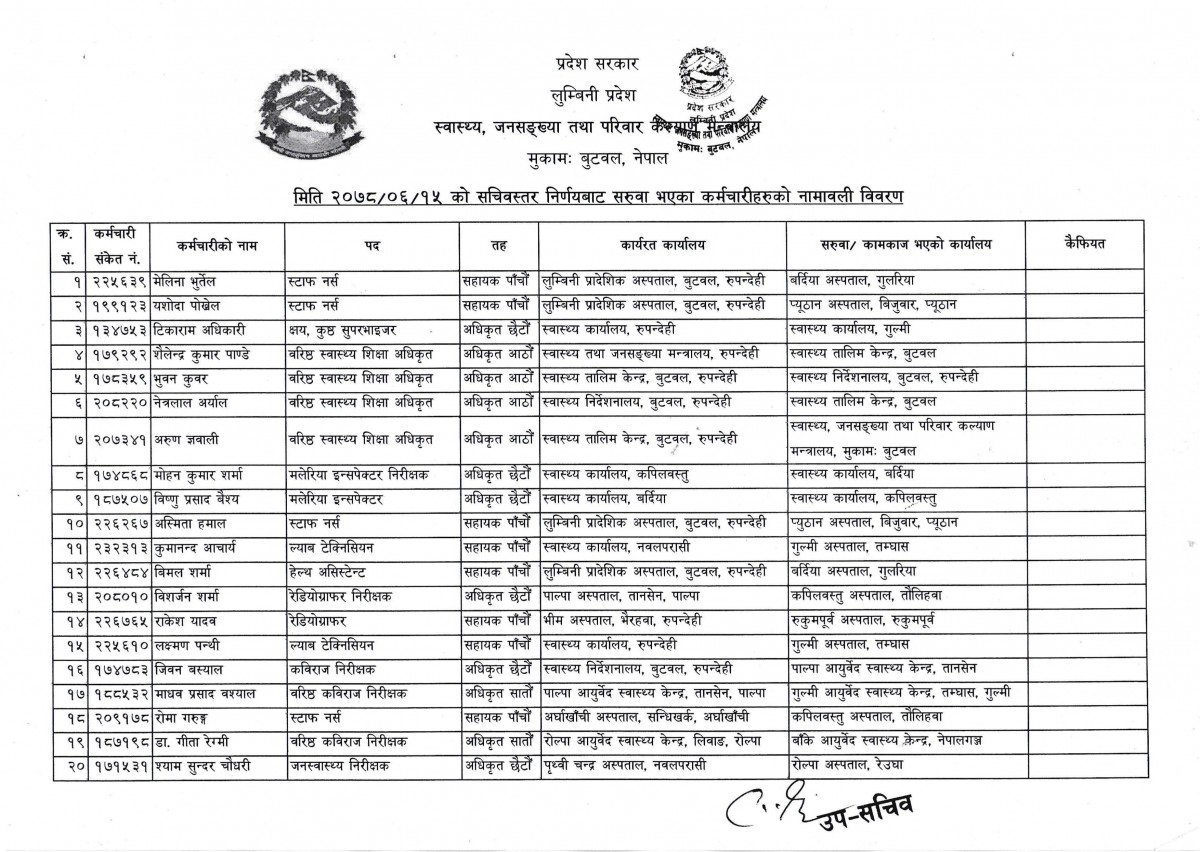 प्रदेश सरकार
लुम्बिनी प्रदेश
स्वास्थ्य, जनसङ्ख्या तथा परिवार कल्याण मन्त्रालय
मुकामः बुटवल, नेपाल
प्रदेश सरकार
लुम्बिनी प्रदेश
मुकामः बुटवल, नेपाल
मिति २०७८/०६/१५ को सचिवस्तर निर्णयबाट सरुवा भएका कर्मचारीहरुको नामावली विवरण
क्र. सं. कर्मचारी संकेत नं. कर्मचारीको नाम पद तह कार्यरत कार्यालय सरुवा/ कामकाज भएको कार्यालय कैफियत
१ २२५६३९ मेलिना भुर्तेल स्टाफ नर्स सहायक पाँचौं लुम्बिनी प्रादेशिक अस्पताल, बुटवल, रुपन्देही बर्दिया अस्पताल, गुलरिया
२ १९९१२३ यशोदा पोख्रेल स्टाफ नर्स सहायक पाँचौं लुम्बिनी प्रादेशिक अस्पताल, बुटवल, रुपन्देही प्यूठान अस्पताल, बिजुवार, प्यूठान
३ १३४७५३ टिकाराम अधिकारी क्षय, कुष्ठ सुपरभाइजर अधिकृत छैटौं स्वास्थ्य कार्यालय, रुपन्देही स्वास्थ्य कार्यालय, गुल्मी
४ १७९२९२ शैलेन्द्र कुमार पाण्डे वरिष्ठ स्वास्थ्य शिक्षा अधिकृत अधिकृत आठौं स्वास्थ्य तथा जनसङ्ख्या मन्त्रालय, रुपन्देही स्वास्थ्य तालिम केन्द्र, बुटवल
५ १७८३५९ भुवन कुवर वरिष्ठ स्वास्थ्य शिक्षा अधिकृत अधिकृत आठौं स्वास्थ्य तालिम केन्द्र, बुटवल, रुपन्देही स्वास्थ्य निर्देशनालय, बुटवल, रुपन्देही
६ २०८२२० नेत्रलाल अर्याल वरिष्ठ स्वास्थ्य शिक्षा अधिकृत अधिकृत आठौं स्वास्थ्य निर्देशनालय, बुटवल, रुपन्देही स्वास्थ्य तालिम केन्द्र, बुटवल
७ २०७३४१ अरुण ज्ञवाली वरिष्ठ स्वास्थ्य शिक्षा अधिकृत अधिकृत आठौं स्वास्थ्य तालिम केन्द्र, बुटवल, रुपन्देही स्वास्थ्य, जनसङ्ख्या तथा परिवार कल्याण
मन्त्रालय, मुकामः बुटवल
८ १७४८६८ मोहन कुमार शर्मा मलेरिया इन्सपेक्टर निरीक्षक अधिकृत छैटौं स्वास्थ्य कार्यालय, कपिलवस्तु स्वास्थ्य कार्यालय, बर्दिया
९ १८७५०७ विष्णु प्रसाद वैश्य मलेरिया इन्सपेक्टर अधिकृत छैटौं स्वास्थ्य कार्यालय, बर्दिया स्वास्थ्य कार्यालय, कपिलवस्तु
१० २२६२६७ अस्मिता हमाल स्टाफ नर्स सहायक पाँचौं लुम्बिनी प्रादेशिक अस्पताल, बुटवल, रुपन्देही प्युठान अस्पताल, बिजुवार, प्यूठान
११ २३२३१३ कुमानन्द आचार्य ल्याब टेक्निसियन सहायक पाँचौं स्वास्थ्य कार्यालय, नवलपरासी गुल्मी अस्पताल, तम्घास
१२ २२६४८४ बिमल शर्मा हेल्थ असिस्टेन्ट सहायक पाँचौं लुम्बिनी प्रादेशिक अस्पताल, बुटवल, रुपन्देही बर्दिया अस्पताल, गुलरिया
१३ २०८०१० विशर्जन शर्मा रेडियोग्राफर निरीक्षक अधिकृत छैटौं पाल्पा अस्पताल, तानसेन, पाल्पा कपिलवस्तु अस्पताल, तौलिहवा
१४ २२६७६५ राकेश यादव रेडियोग्राफर सहायक पाँचौं भीम अस्पताल, भैरहवा, रुपन्देही रुकुमपूर्व अस्पताल, रुकुमपूर्व
१५ २२५६१० लक्ष्मण पन्थी ल्याब टेक्निसियन सहायक पाँचौं स्वास्थ्य कार्यालय, रुपन्देही गुल्मी अस्पताल, तम्घास
१६ १७४७८३ जिवन बस्याल कविराज निरीक्षक अधिकृत छैटौं स्वास्थ्य निर्देशनालय, बुटवल, रुपन्देही पाल्पा आयुर्वेद स्वास्थ्य केन्द्र, तानसेन
१७ १८८५३२ माधव प्रसाद वश्याल वरिष्ठ कविराज निरीक्षक अधिकृत सातौं पाल्पा आयुर्वेद स्वास्थ्य केन्द्र, तानसेन, पाल्पा गुल्मी आयुर्वेद स्वास्थ्य केन्द्र, तम्घास, गुल्मी
१८ २०९१७८ रोमा गरुङ्ग स्टाफ नर्स सहायक पाँचौं अर्घाखाँची अस्पताल, सन्धिखर्क, अर्घाखाँची कपिलवस्तु अस्पताल, तौलिहवा
१९ १८७१९८ डा. गीता रेग्मी वरिष्ठ कविराज निरीक्षक अधिकृत सातौं रोल्पा आयुर्वेद स्वास्थ्य केन्द्र, लिवाङ, रोल्पा बाँके आयुर्वेद स्वास्थ्य केन्द्र, नेपालगञ्ज
२० १७१५३१ श्याम सुन्दर चौधरी जनस्वास्थ्य निरीक्षक अधिकृत छैटौं पृथ्वी चन्द्र अस्पताल, नवलपरासी रोल्पा अस्पताल, रेउघा
उप-सचिव